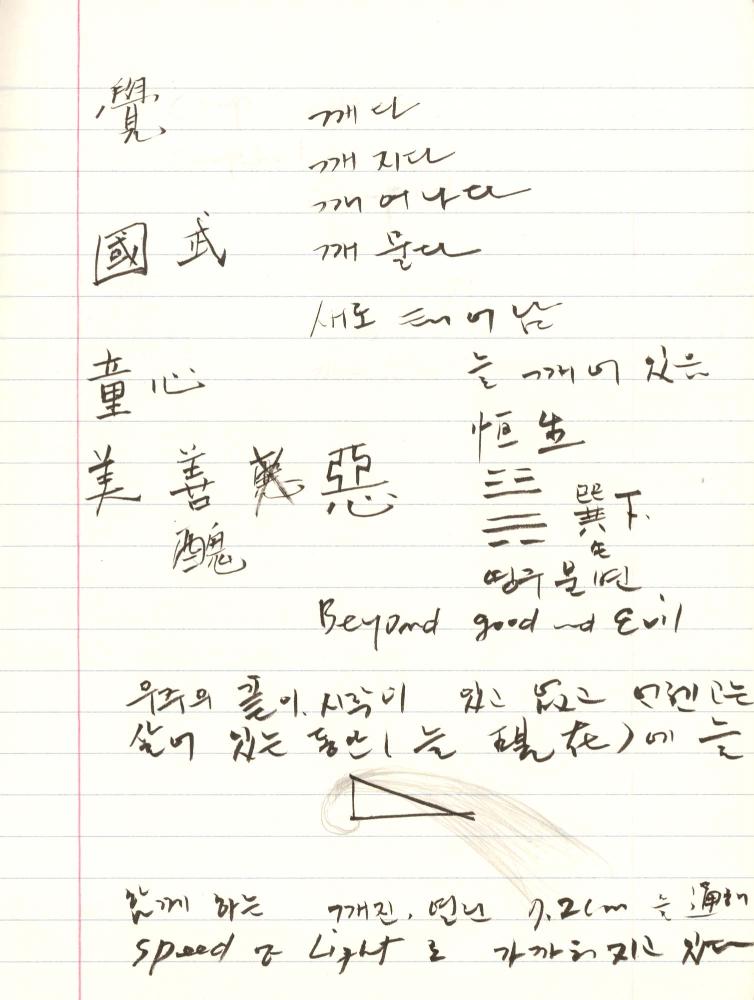 覺 깨다
깨지다
깨어나다
國 武 깨물다
새로 태어남
童心 늘 깨어 있음
恒生
美 善 惡
巽下
醜
Beyond good and Evil
우주의 끝이, 시작이 있고 없고 언젠고는
살어 있는 동안(늘 現在)에 늘
함께 하는 깨진, 7.2cm 를 通해
speed of Light 로 가까워지고 있다